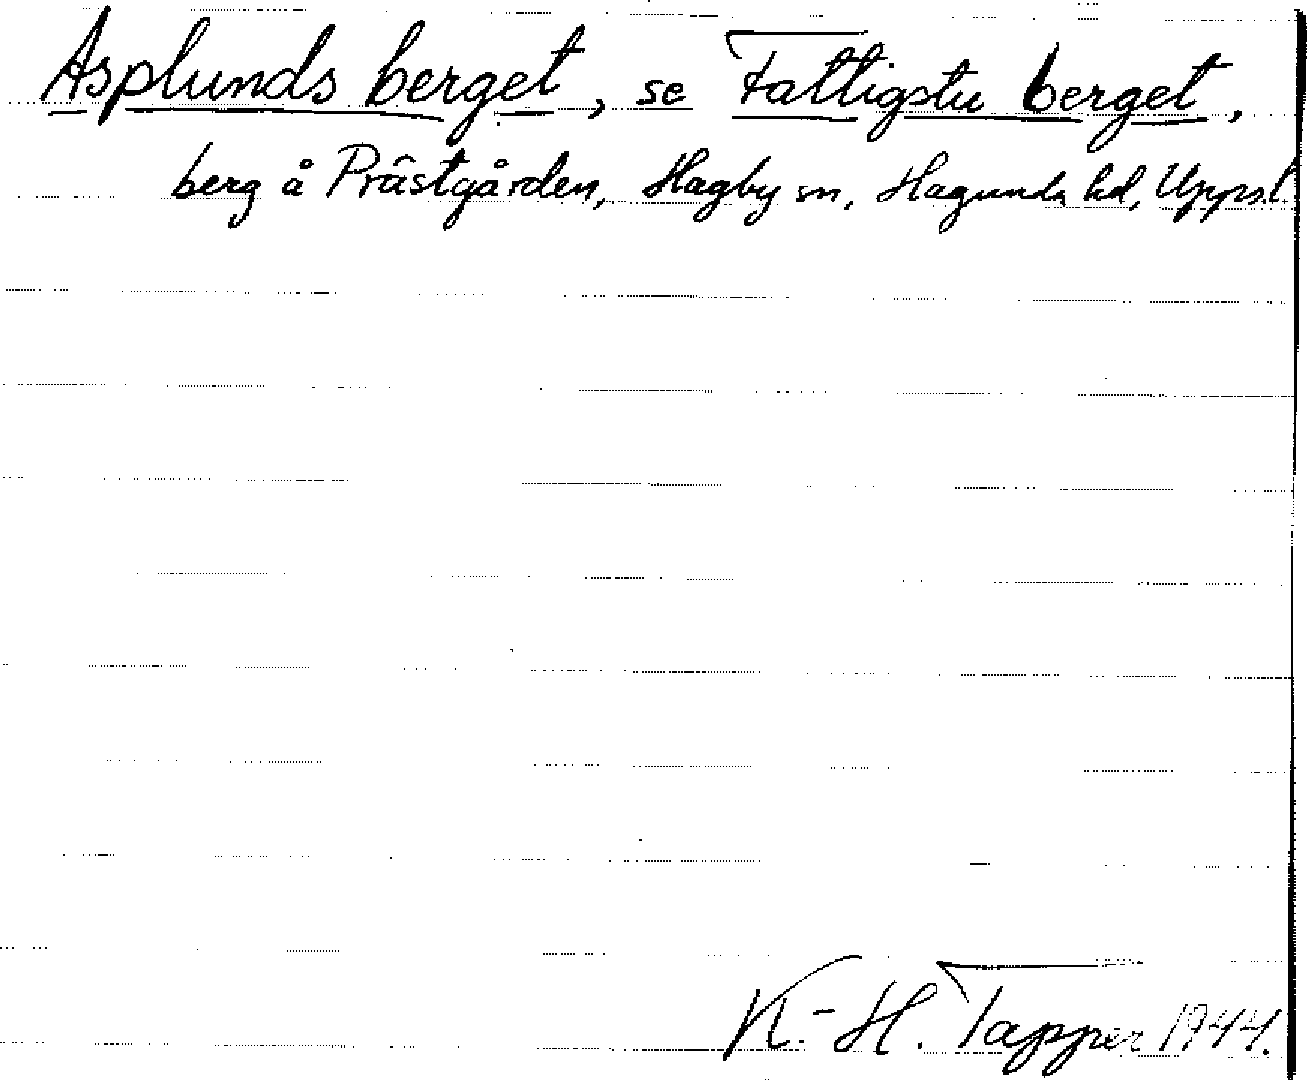 Asplunds berget, se Fattigstu berget,
berg å Prästgården, Hagby sn, Hagunda hd, Uppsl.
K.-H. Tapper 1944.